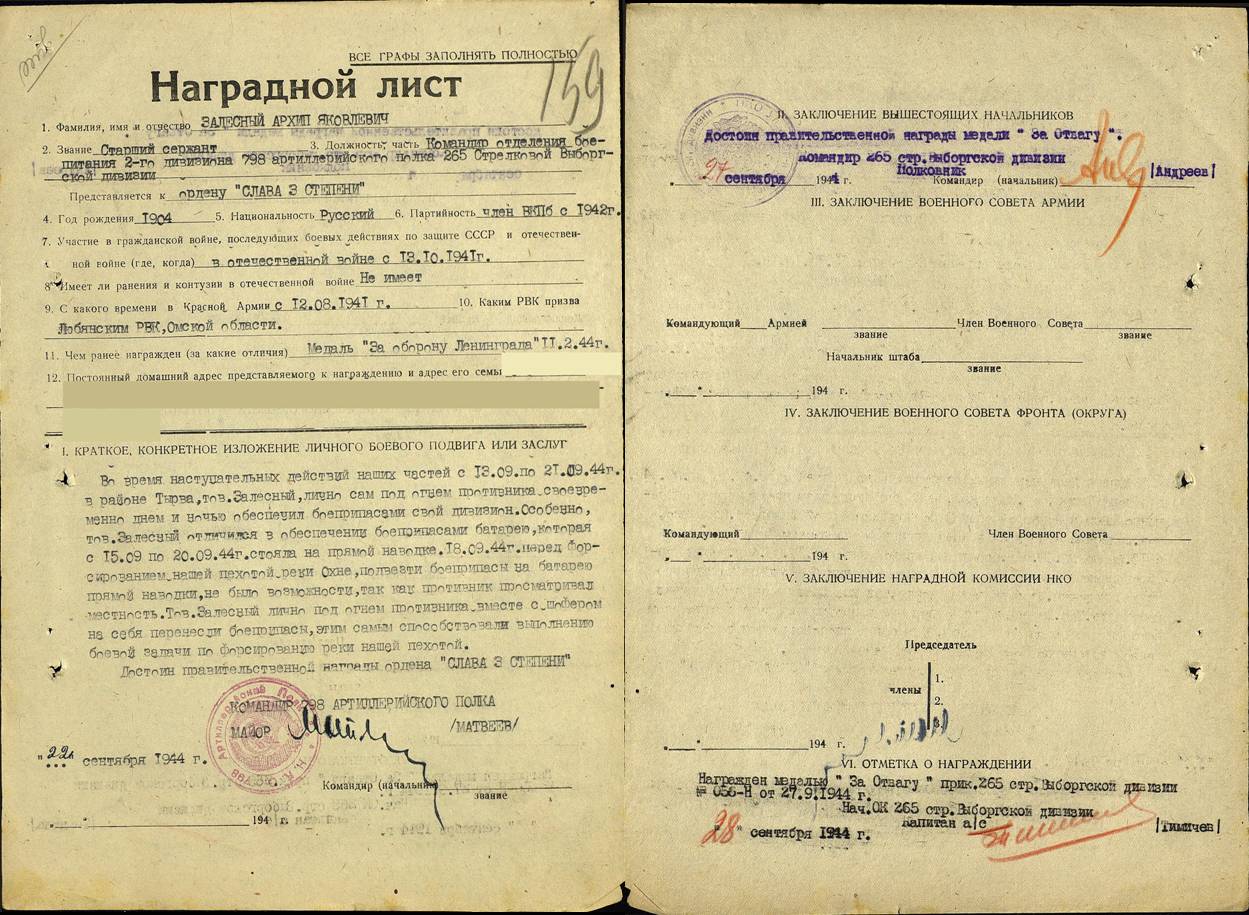 ВСЕ ГРАФЫ ЗАПОЛНЯТЬ ПОЛНОСТЬЮ
Наградной лист
159
1. Фамилия, имя и отчество ЗАЛЕСНЫЙ АРХИП ЯКОВЛЕВИЧ
2. Звание Старший сержант 3. Должность, часть Командир отделения бое-
питания 2-го дивизиона 798 артиллерийского полка 265 Стрелковой Выборг-
ской дивизии
Представляется к ордену "СЛАВА 3 СТЕПЕНИ"
4. Год рождения 1904 5. Национальность Русский 6. Партийность член ВКПб с 1942г.
7. Участие в гражданской войне, последующих боевых действиях по защите СССР и отечествен-
ной войне (где, когда) в отечественной войне с 13.10.1941г.
8. Имеет ли ранения и контузии в отечественной войне Не имеет
9. С какого времени в Красной Армии с 12.08.1941 г. 10. Каким РВК призва
Любянским РВК,Омской области.
11. Чем ранее награжден (за какие отличия) Медаль "За оборону Ленинграда" 11.2.44г.
12. Постоянный домашний адрес представляемого к награждению и адрес его семьи
I. КРАТКОЕ, КОНКРЕТНОЕ ИЗЛОЖЕНИЕ ЛИЧНОГО БОЕВОГО ПОДВИГА ИЛИ ЗАСЛУГ
Во время наступательных действий наших частей с 13.09.по 21.09.44г.
в районе Тырва,тов.Залесный,лично сам под огнем противника своевре-
менно днем и ночью обеспечил боеприпасами свой дивизион.Особенно,
тов.Залесный отличился в обеспечении боеприпасами батарею,которая
с 15.09 по 20.09.44г.стояла на прямой наводке.18.09.44г.перед фор-
сированием нашей пехотой реки Охне,подвезти боеприпасы на батарею
прямой наводки,не было возможности,так как противник просматривал
местность.Тов.Залесный лично под огнем противника вместе с шофером
на себя перенесли боеприпасы,этим самым способствовали выполнению
боевой задачи по форсированию реки нашей пехотой.
Достоин правительственной награды ордена "СЛАВА 3 СТЕПЕНИ"
КОМАНДИР 798 АРТИЛЛЕРИЙСКОГО ПОЛКА
МАЙОР /МАТВЕЕВ/
"22" сентября 1944 г.
Командир (начальник)
звание
" " 194 г.
II. ЗАКЛЮЧЕНИЕ ВЫШЕСТОЯЩИХ НАЧАЛЬНИКОВ
Достоин правительственной награды медали " За Отвагу ".
Командир 265 стр.Выборгской дивизии
Полковник
27 сентября 1944 г. Командир (начальник) /Андреев/
III. ЗАКЛЮЧЕНИЕ ВОЕННОГО СОВЕТА АРМИИ
Командующий Армией Член Военного Совета
звание звание
Начальник штаба
звание
" " 194 г.
IV. ЗАКЛЮЧЕНИЕ ВОЕННОГО СОВЕТА ФРОНТА (ОКРУГА)
Командующий Член Военного Совета
" " 194 г.
V. ЗАКЛЮЧЕНИЕ НАГРАДНОЙ КОМИССИИ НКО
Председатель
члены
1.
2.
3.
" " 194 г.
VI. ОТМЕТКА О НАГРАЖДЕНИИ
Награжден медалью " За Отвагу " прик.265 стр.Выборгской дивизии
№ 056-Н от 27.9.1944 г.
Нач.ОК 265 стр.Выборгской дивизии
Капитан а/с /Тимичев/
"28" сентября 1944 г.